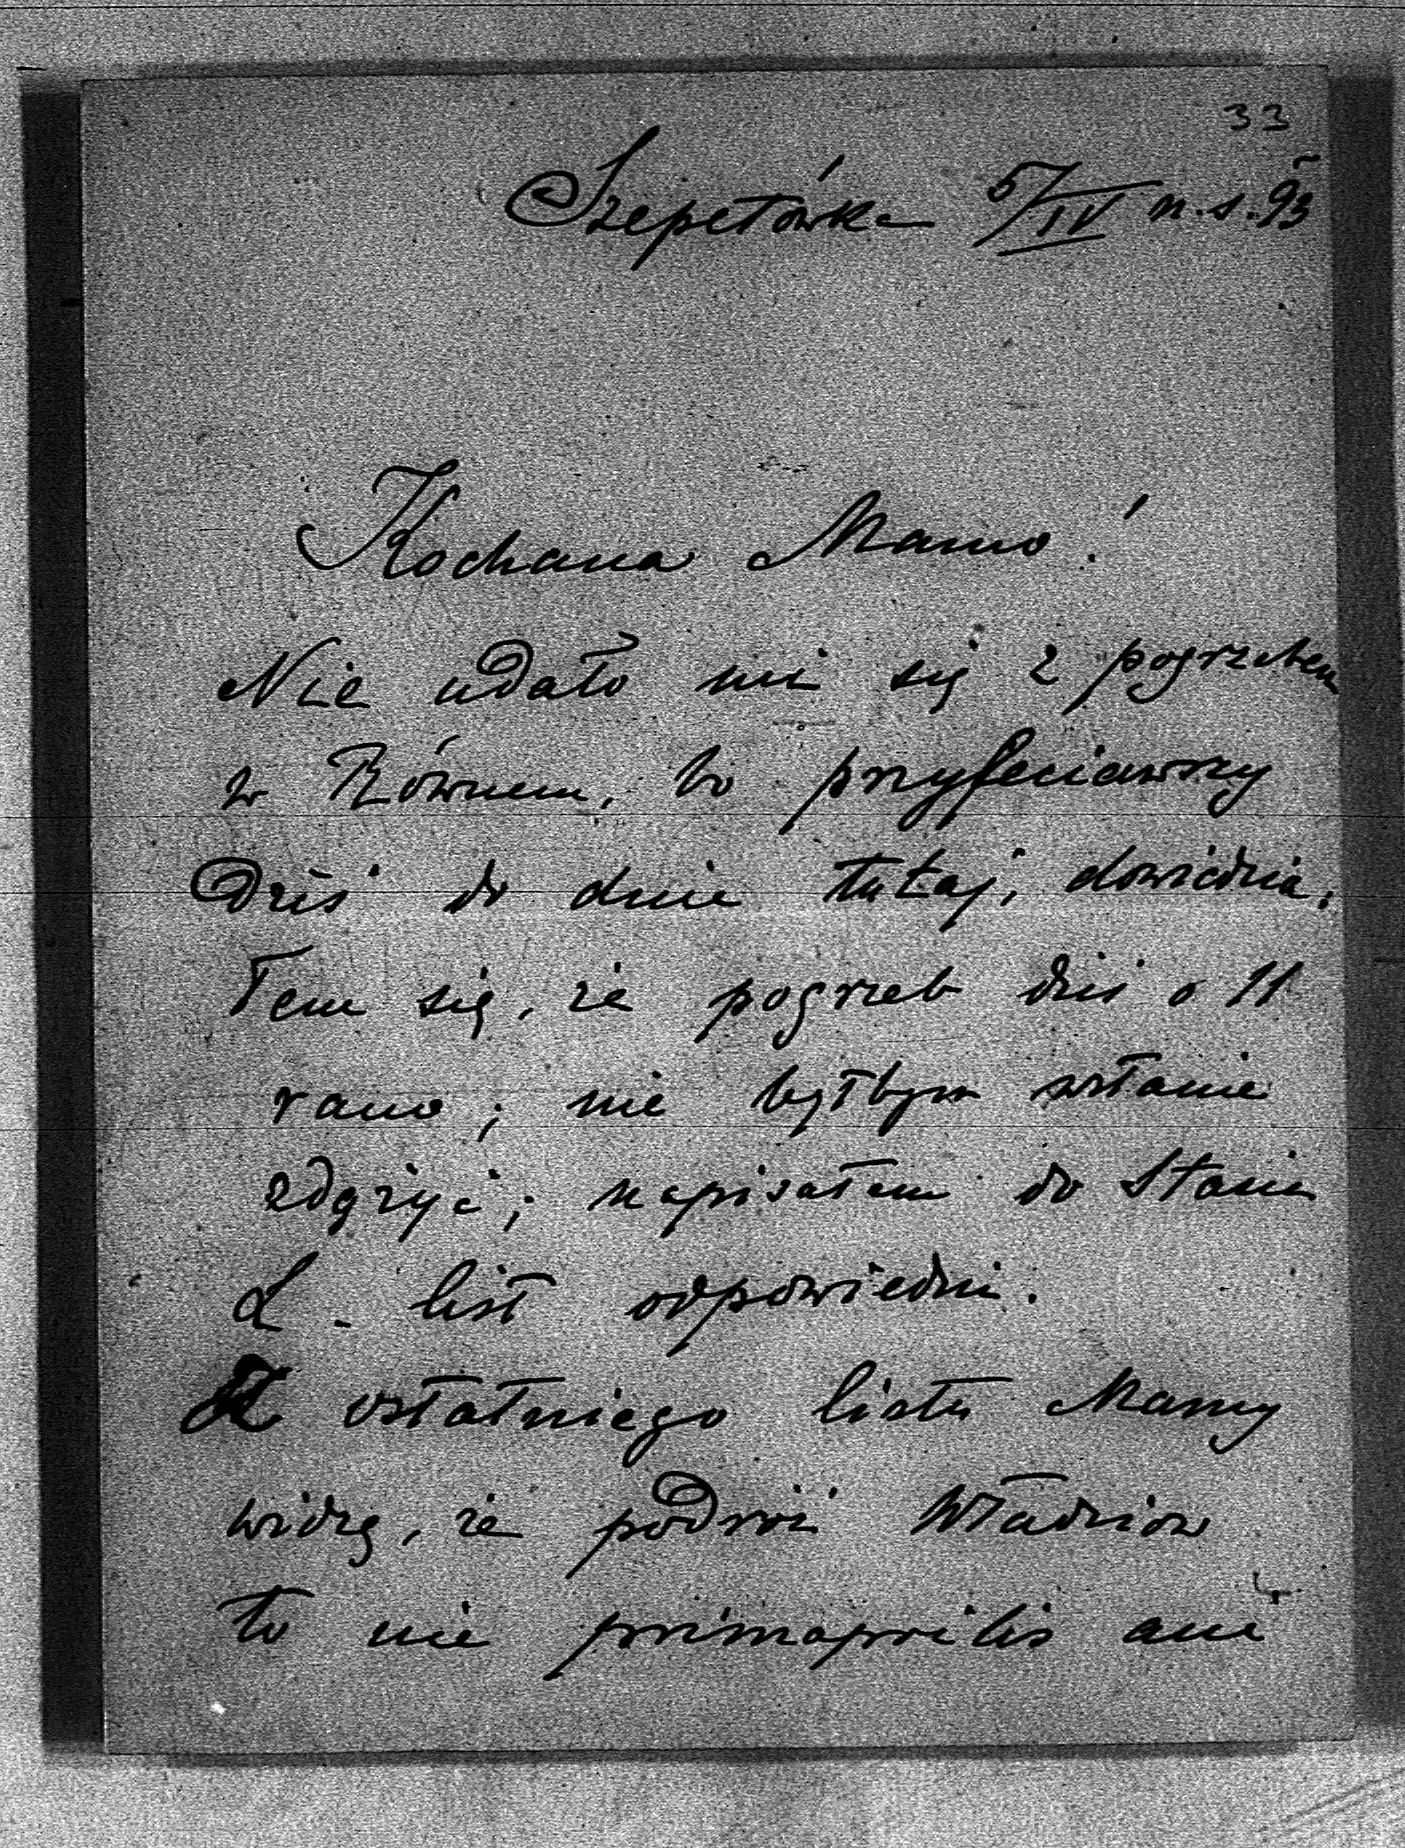 33
Szepetówka 5/IV n.s. 93
Kochana Mamo!
Nie udało mi się z pogrzebem
w Równem, bo przyjechawszy
dziś do dnie tutaj, dowiedzia.
łem się, że pogrzeb dziś o 11
rano; nie byłbym wstanie
zdążyć; napisałem do Stasia
L. list odpowiedni.
Z ostatniego listu Mamy
widzę, że podróż Władziów
to nie primaprilis ani